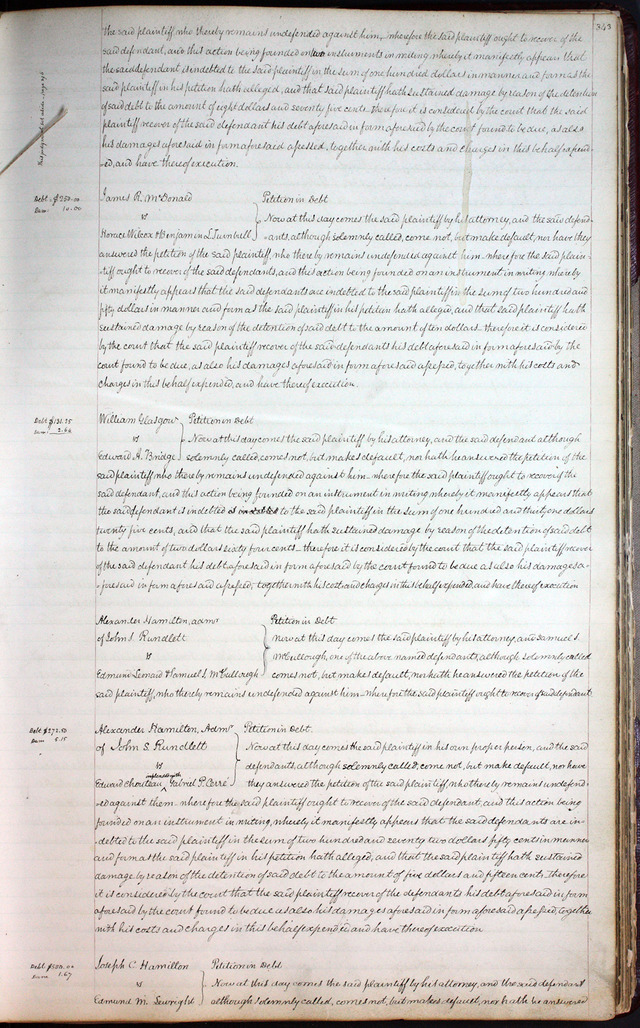 343
the said plaintiff who thereby remains undefended against him, wherefore the said plaintiff ought to recover of the
said defendant, and this action being founded on two instruments in writing, whereby it manifestly appears that
the said defendant is indebted to the said plaintiff in the sum of one hundred dollars in manner and form as the
said plaintiff in his petition hath alleged, and that said plaintiff hath sustained damage by reason of the detention
of said debt to the amount of eight dollars and seventy five cents. therefore it is considered by the court that the said
plaintiff recover of the said defendant his debt aforesaid in form aforesaid by the court found to be due, as also
his damages aforesaid in form aforesaid assessed, together with his costs and charges in this behalf expend-
ed, and have thereof execution.
Debt $250.00
Dam 10.00
James R. McDonald
vs
Horace Wilcox & Benjamin L. Turnbull
Petition in Debt
Now at this day comes the said plaintiff by his attorney, and the said defend-
ants, although solemnly called, come not, but make default, nor have they
answered the petition of the said plaintiff, who thereby remains undefended against him. wherefore the said plain-
tiff ought to recover of the said defendants, and this action being founded on an instrument in writing whereby
it manifestly appears that the said defendants are indebted to the said plaintiff in the sum of two hundred and
fifty dollars in manner and form as the said plaintiff in his petition hath alleged, and that said plaintiff hath
sustained damage by reason of the detention of said debt to the amount of ten dollars. therefore it is considered
by the court that the said plaintiff recover of the said defendants his debt aforesaid in form aforesaid by the
court found to be due, as also his damages aforesaid in form aforesaid assessed, together with his costs and
charges in this behalf expended, and have thereof execution.
Debt $131.25
Dam 2.64
William Glasgow
vs
Edward A. Bridge
Petition in Debt
Now at this day comes the said plaintiff by his attorney, and the said defendant although
solemnly called, comes not, but makes default, nor hath he answered the petition of the
said plaintiff who thereby remains undefended against him. wherefore the said plaintiff ought to recover of the
said defendant, and this action being founded on an instrument in writing whereby it manifestly appears that
the said defendant is indebted to the said plaintiff in the sum of one hundred and thirty one dollars
twenty five cents, and that the said plaintiff hath sustained damage by reason of the detention of said debt
to the amount of two dollars sixty four cents. therefore it is considered by the court that the said plaintiff recover
of the said defendant his debt aforesaid in form aforesaid by the court found to be due as also his damages a-
foresaid in form aforesaid assessed, together with his costs and charges in this behalf expended, and have thereof execution
Alexander Hamilton, admr
of John S. Rundlett
vs
Edmund Leonard & Samuel S. McCullough
Petition in Debt
Now at this day comes the said plaintiff by his attorney, and Samuel S.
McCullough, one of the above named defendants, although solemnly called
comes not, but makes default, nor hath he answered the petition of the
said plaintiff, who thereby remains undefended against him. wherefore the said plaintiff ought to recover of said defendant
Debt $272.50
Dam 5.15
Alexander Hamilton, Admr
of John S. Rundlett
vs
Edward Chouteau impleaded with Gabriel P. Cerré
Petition in Debt.
Now at this day comes the said plaintiff in his own proper person, and the said
defendants, although solemnly called, come not, but make default, nor have
they answered the petition of the said plaintiff, who thereby remains undefend-
ed against them. wherefore the said plaintiff ought to recover of the said defendant, and this action being
founded on an instrument in writing, whereby it manifestly appears that the said defendants are in-
debted to the said plaintiff in the sum of two hundred and seventy two dollars fifty cents in manner
and form as the said plaintiff in his petition hath alleged, and that the said plaintiff hath sustained
damage by reason of the detention of said debt to the amount of five dollars and fifteen cents. therefore
it is considered by the court that the said plaintiff recover of the defendants his debt aforesaid in form
aforesaid by the court found to be due as also his damages aforesaid in form aforesaid assessed, together
with his costs and charges in this behalf expended and have thereof execution
Dam 1.67
Joseph C. Hamilton
vs
Edmund M. Seawright
Petition in Debt
Now at this day comes the said plaintiff by his attorney, and the said defendant
although solemnly called, comes not, but makes default, nor hath he answered